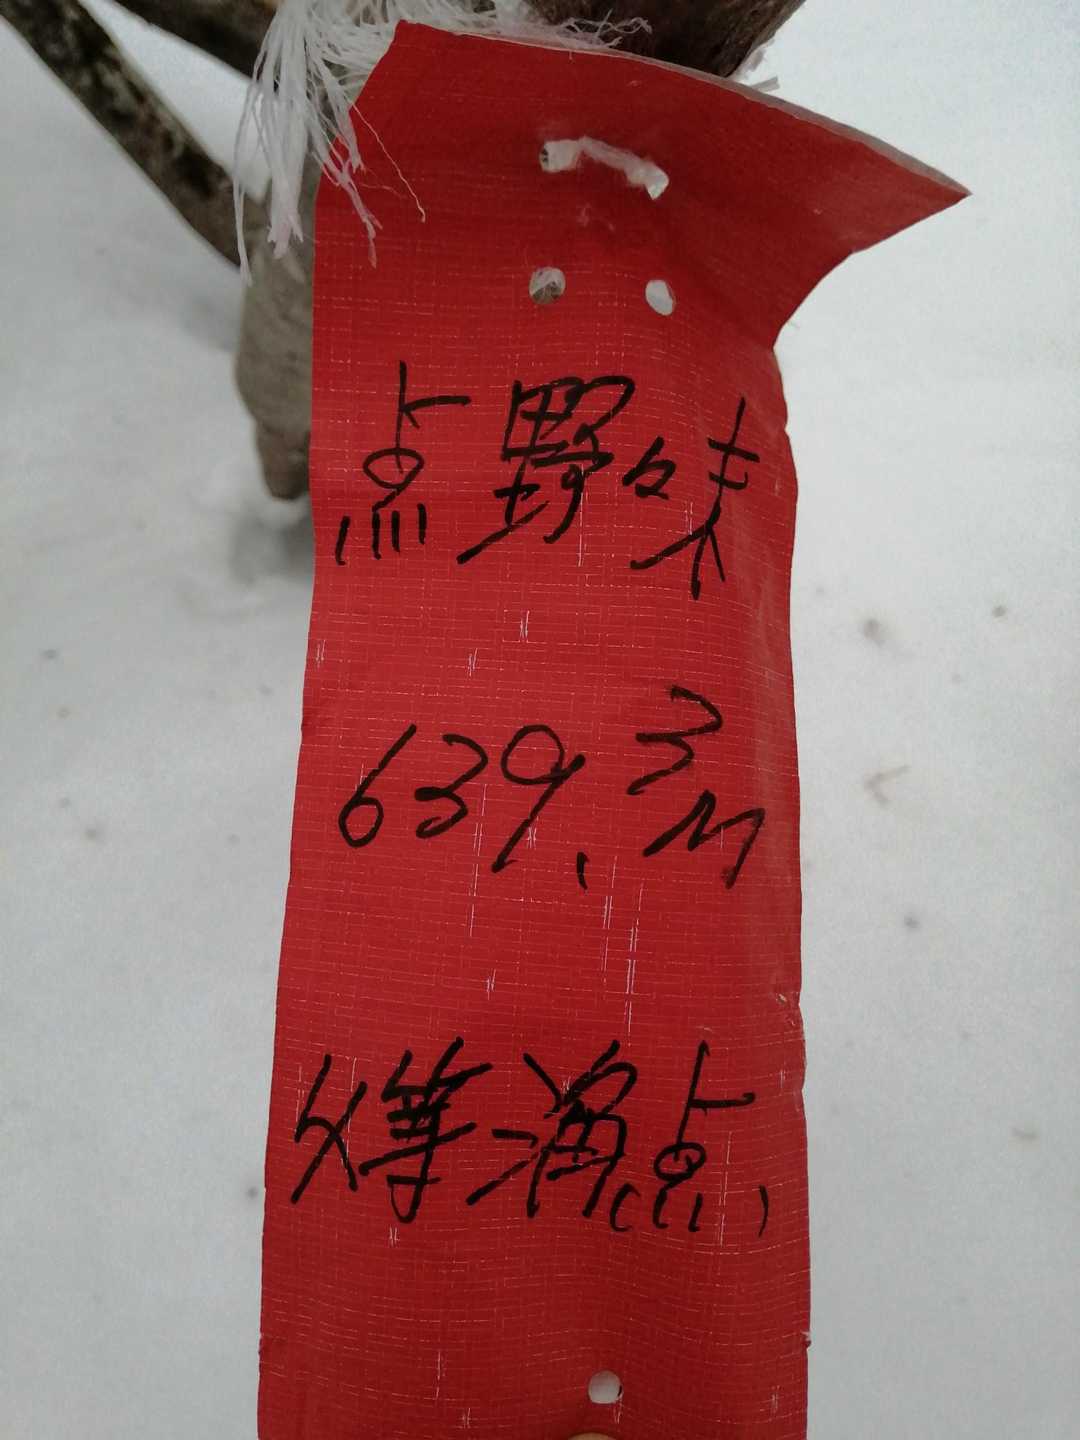 点野味
639.3M
漁点